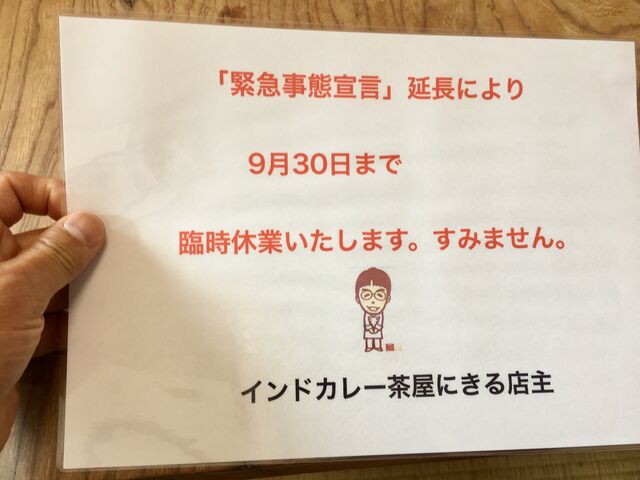 「緊急事態宣言」延長により
9月30日まで
臨時休業いたします。すみません。
インドカレー茶屋にきる店主